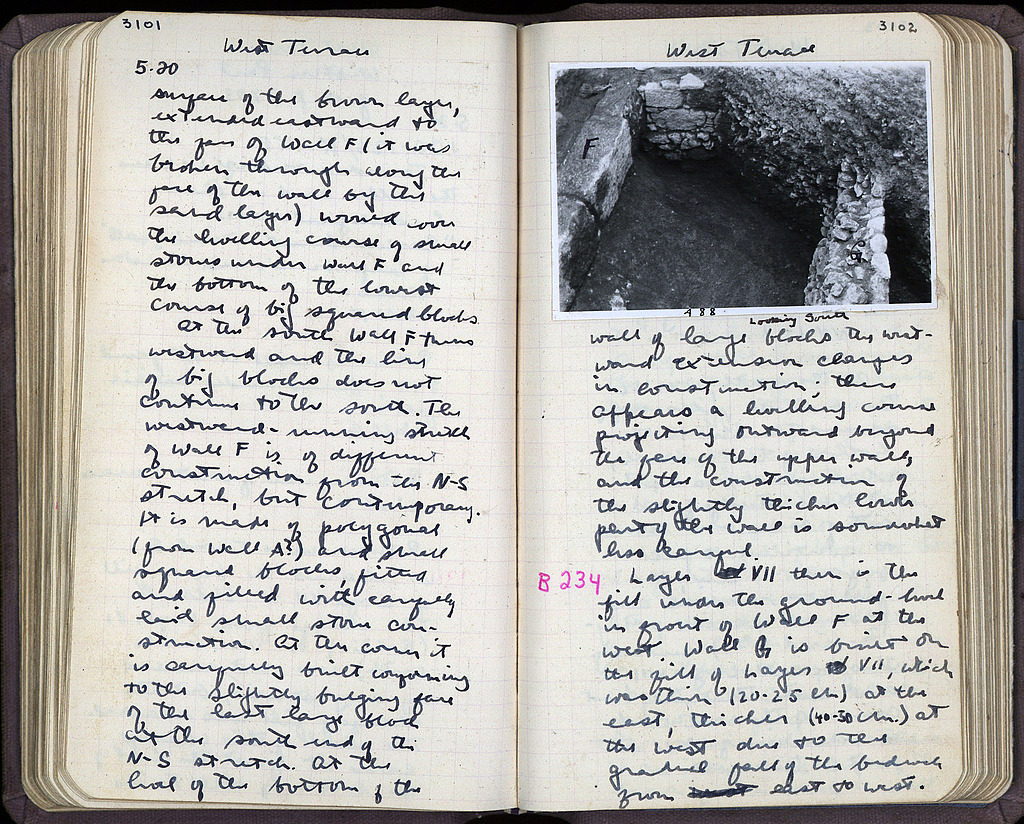 3101
West Terrace
5.20
surface of the brown layer,
extended eastward to
the face of Wall F (it was
broken through along the
face of the wall by the
sand layer) would cover
the levelling course of small
stones under Wall F and
the bottom of the lowest
course of big squared blocks
At the south Wall F turns
westward and the line
of big blocks does not
continue to the south. The
westward-running stretch
of Wall F is of different
construction from the N-S
stretch, but contemporary.
It is made of polygonal
(from Wall A?) and small
squared blocks, fitted
and filled with carefully
laid small stone con-
struction. At the corner it
is carefully built conforming
to the slightly bulging face
of the last large block
at the south end of the
N-S stretch. At the
level of the bottom of the
3102
West Terrace
F
G
488
Looking South
wall of large blocks the west-
ward extension changes
in construction; there
appears a levelling course
projecting outward beyond
the face of the upper wall,
and the construction of
the slightly thicker lower
part of the wall is somewhat
less careful.
B 234
Layer VII then is the
fill under the ground-level
in front of Wall F at the
west. Wall G is built on
the fill of Layer VII, which
was thin (20-25 cm) at the
east, thicker (40-30 cm.) at
the west due to the
gradual fall of the bedrock
from east to west.